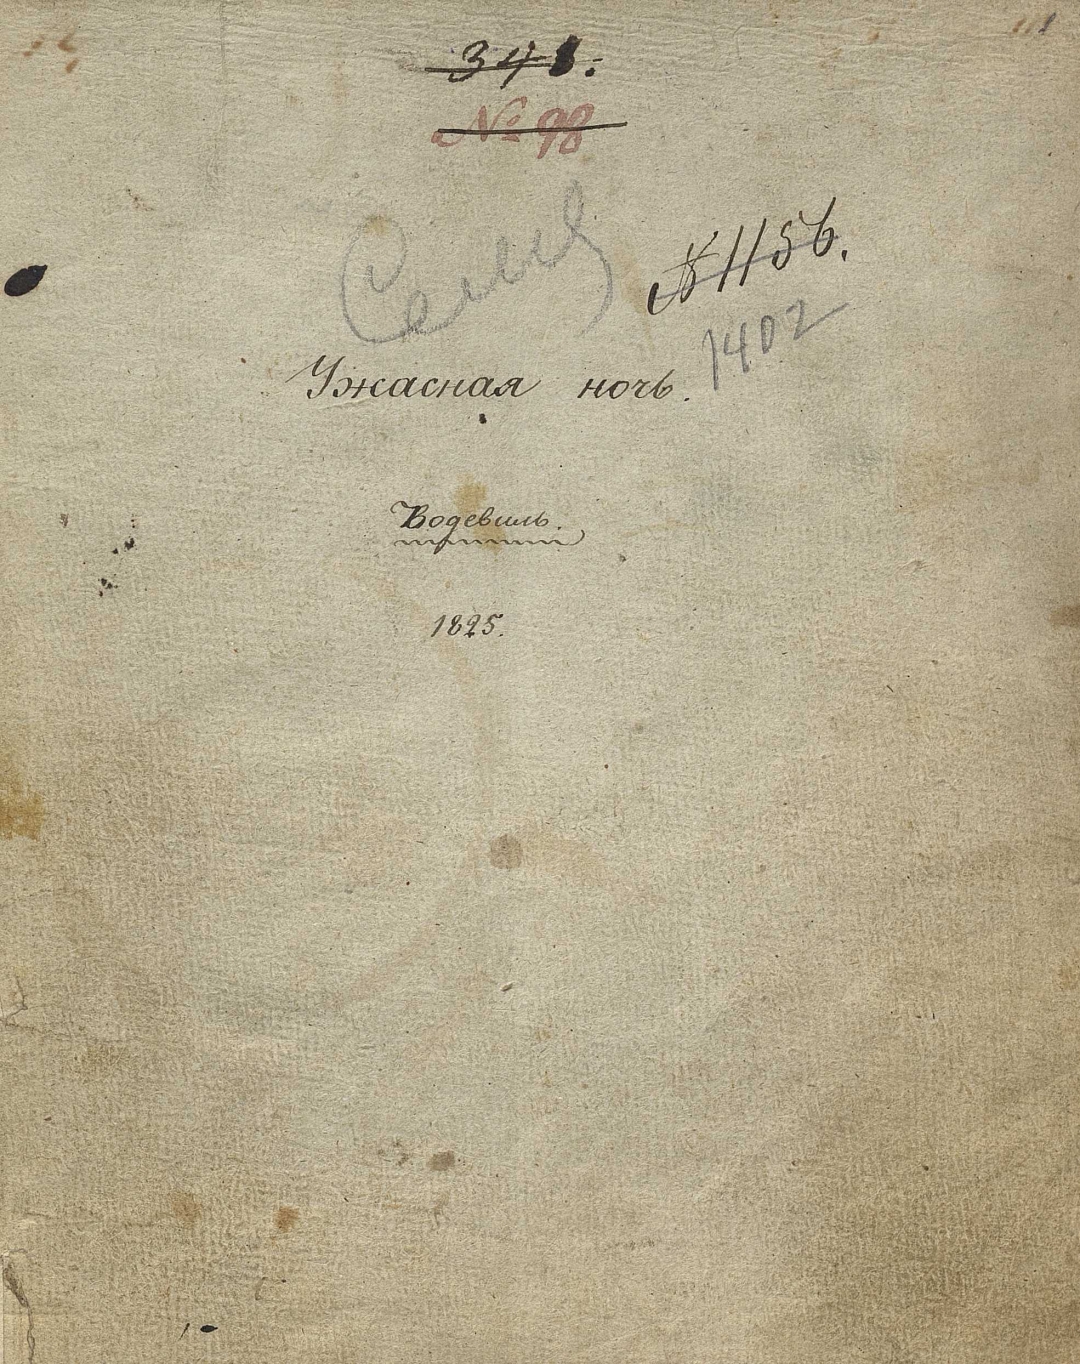 348.
№ 98
№ 1156.
1402
Ужасная ночь.
Водевиль.
1825.